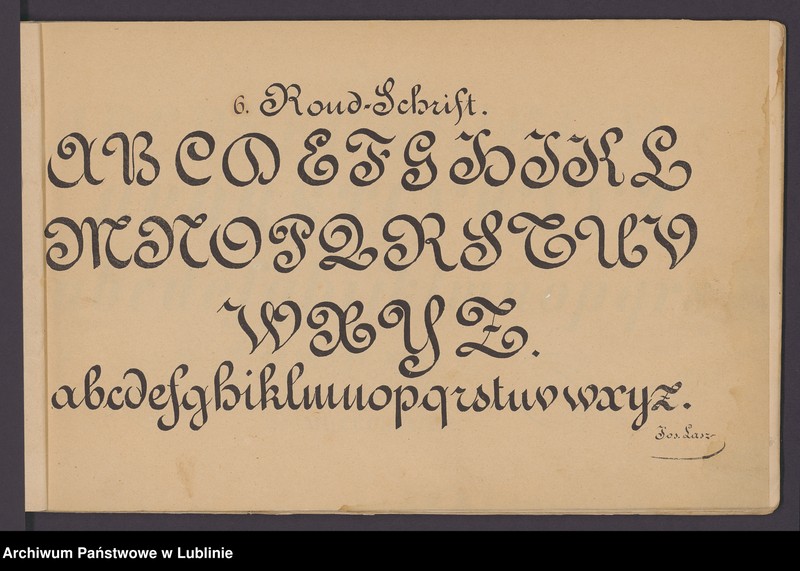 6. Rond-Schrift.
A B C D E F G H I K L
M N O P Q R S T U V
W X Y Z.
a b c d e f g h i k l m n o p q r s t u v w x y z.
Jos. Lasz
Archiwum Państwowe w Lublinie